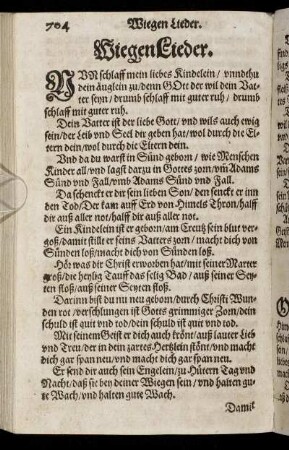 704 Wiegen Lieder.
Wiegen Lieder.
NVN schlaff mein liebes Kindelein / vnnd thu
dein äuglein zu / denn GOtt der wil dein Vat-
ter seyn / drumb schlaff mit guter ruh / drumb
schlaff mit guter ruh.
Dein Vatter ist der liebe Gott / vnd wils auch ewig
sein / der Leib vnd Seel dir geben hat / wol durch die El-
tern dein / wol durch die Eltern dein.
Vnd da du warst in Sünd geborn / wie Menschen
Kinder all / vnd lagst darzu in Gottes zorn / vm̃ Adams
Sünd vnd Fall / vmb Adams Sünd vnd Fall.
Da schenckt er dir sein lieben Son / den senckt er inn
den Tod / Der kam auff Erd von Himels Thron / halff
dir auß aller not / halff dir auß aller not.
Ein Kindelein ist er geborn / am Creutz sein blut ver-
goß / damit stillt er seins Vatters zorn / macht dich von
Sünden loß / macht dich von Sünden loß.
Hör was dir Christ erworben hat / mit seiner Marter
groß / die heylig Tauff das selig Bad / auß seiner Sey-
ten floß / auß seiner Seyten floß.
Darinn bist du nu new geborn / durch Christi Wun-
den rot / verschlungen ist Gottes grimmiger Zorn / dein
schuld ist quit vnd rod / dein schuld ist quit vnd tod.
Mit seinem Geist er dich auch krönt / auß lauter Lieb
vnd Trew / der in dein zartes Hertzlein stönt / vnd macht
dich gar span new / vnd macht dich gar span new.
Er send dir auch sein Engelein / zu Hütern Tag vnd
Nacht / daß sie bey deiner Wiegen sein / vnd halten gu-
te Wach / vnd halten gute Wach.
Damit